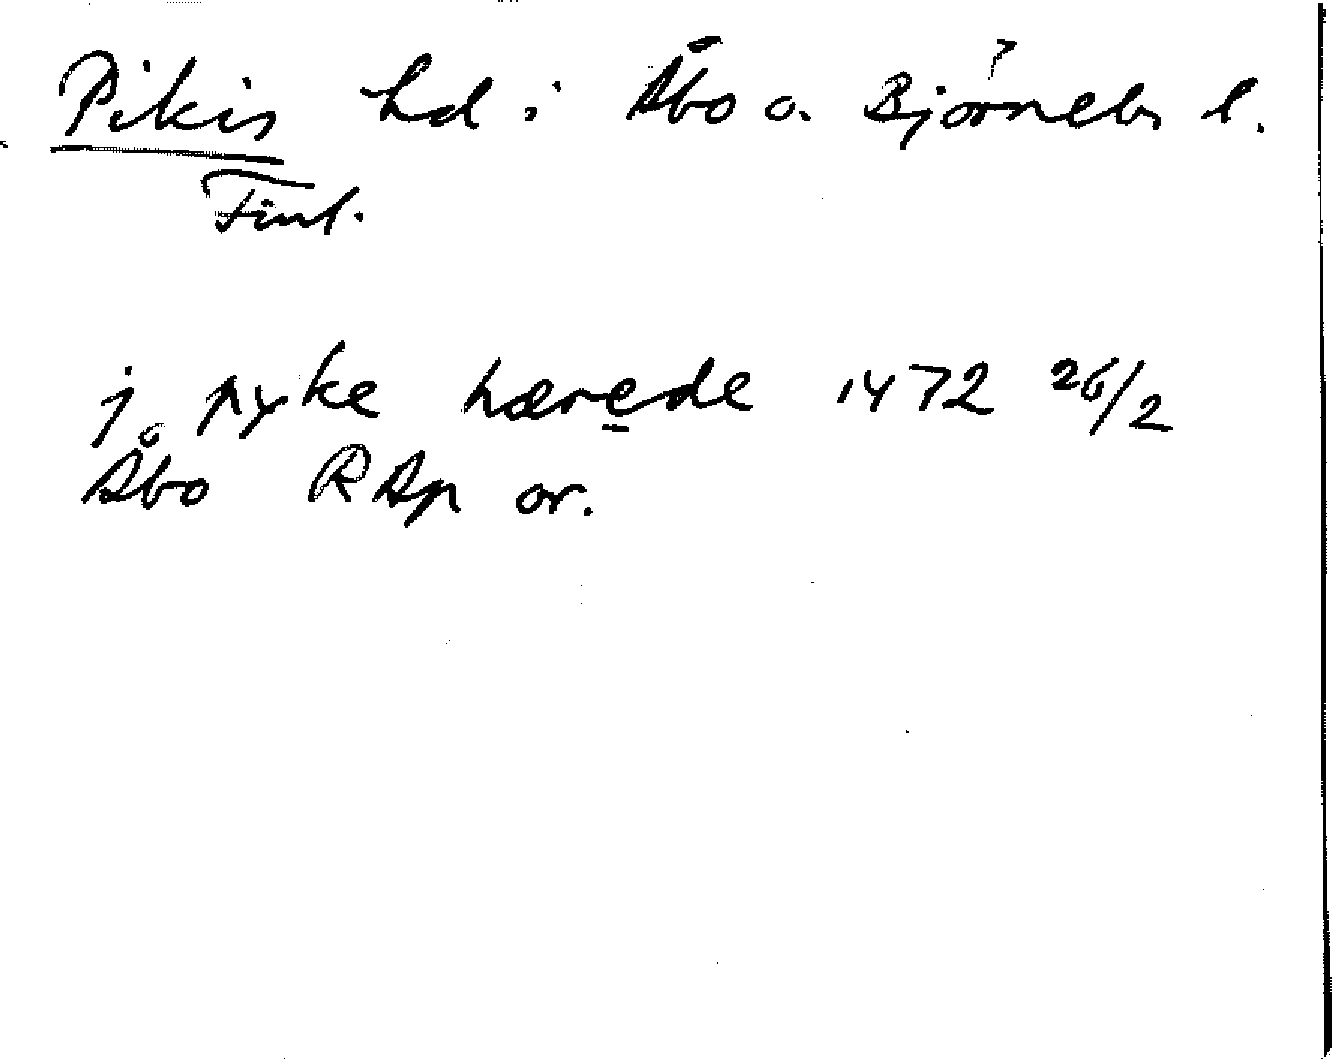 Pikis hd i Åbo o. Björnebs l.
Finl.
j pyke hærede 1472 26/2
Åbo RAp or.